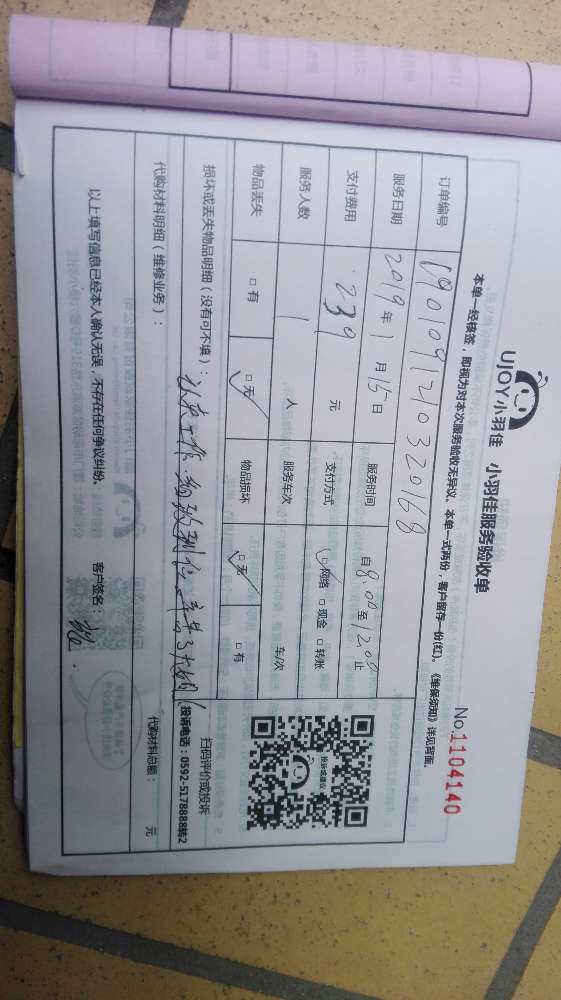 UJOY小羽佳 小羽佳服务验收单
No.1104140
本单一经核签，即视为对本次服务验收无异议、本单一式两份，客户留存一份(红)。《维保须知》详见背面。
订单编号 1901091210320168
服务日期 2019年1月15日 服务时间 自8:00至12:00止
支付费用 239元 支付方式 ☑网络 □现金 □转账
服务人数 1人 服务车次 车/次
物品丢失 □有 ☑无 物品损坏 ☑无 □有
损坏或丢失物品明细（没有可不填）：认真工作.细致到位
扫码评价或投诉
投诉电话：0592-5178888转2
代购材料明细（维修业务）：
代购材料总额： 元
以上填写信息已经本人确认无误，不存在任何争议纠纷。
客户签名：
投诉或建议